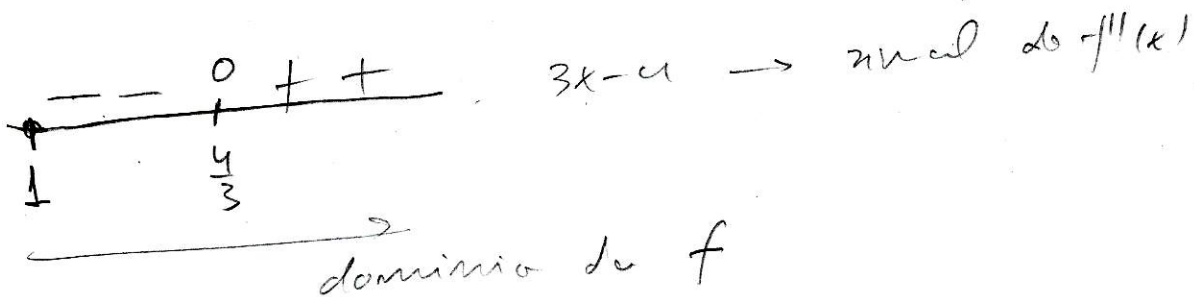 — — 0 + + 3x-4 → sinal de f''(x)
1 4/3
domínio de f